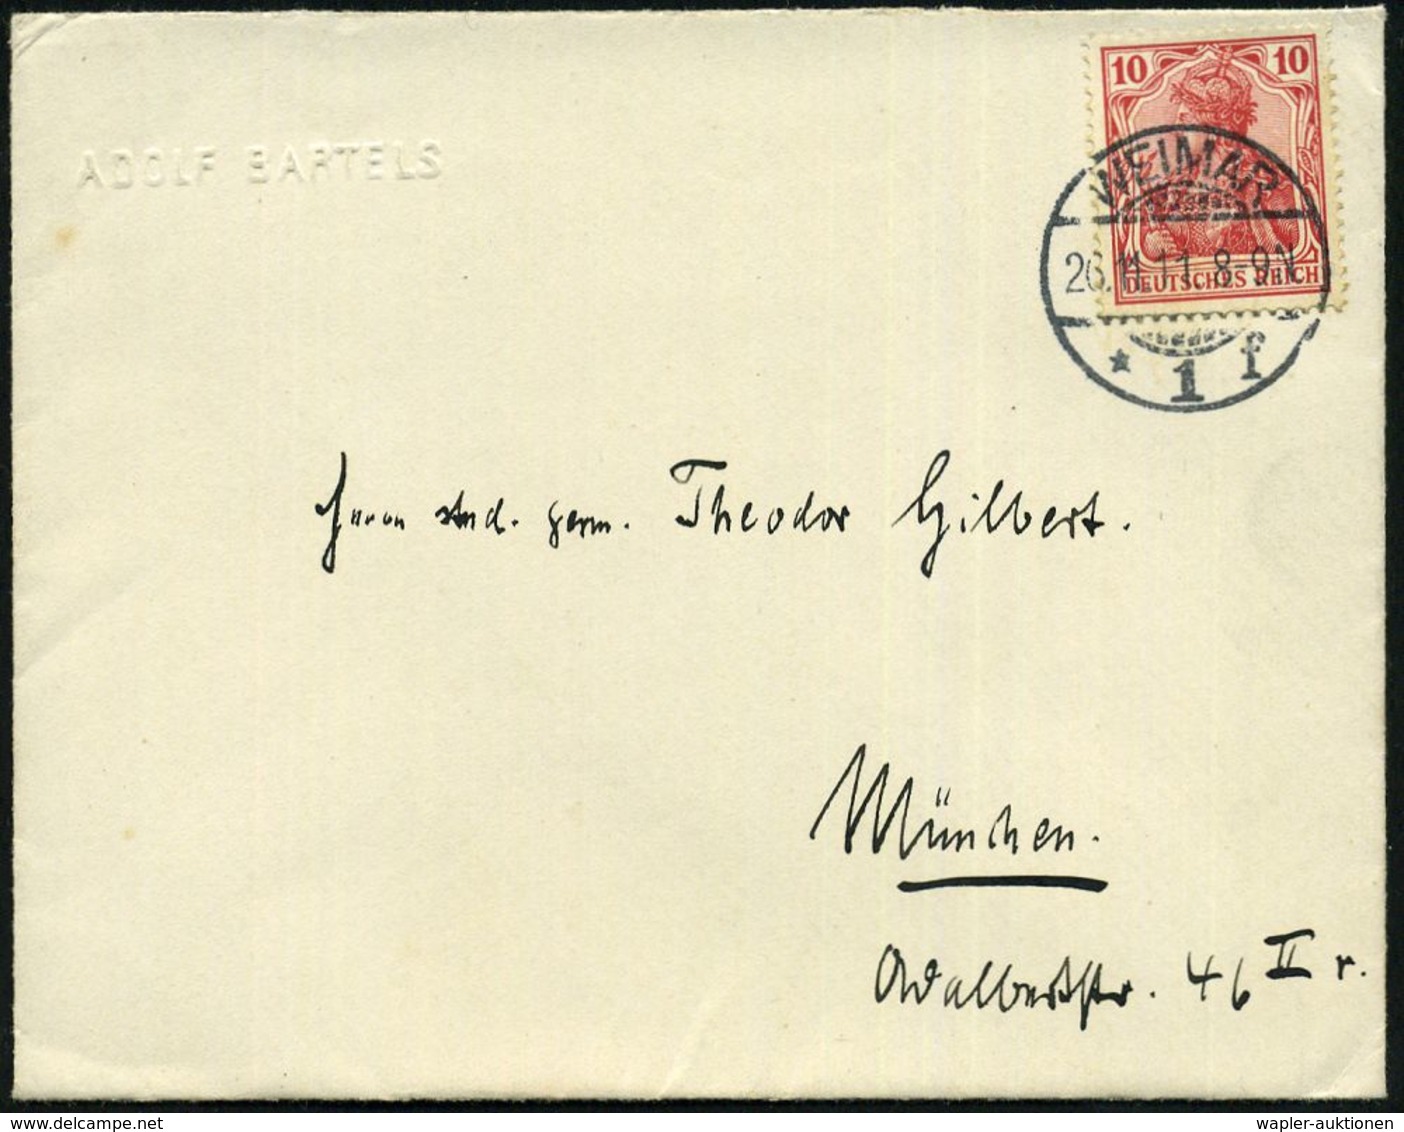 10 10
ADOLF BARTELS
WEIMAR
26.11.11. 8-9N
DEUTSCHES REICH
* 1 f
Herrn stud. germ. Theodor Gilbert.
München.
Adalbertstr. 46 II r.
wapler-auktionen